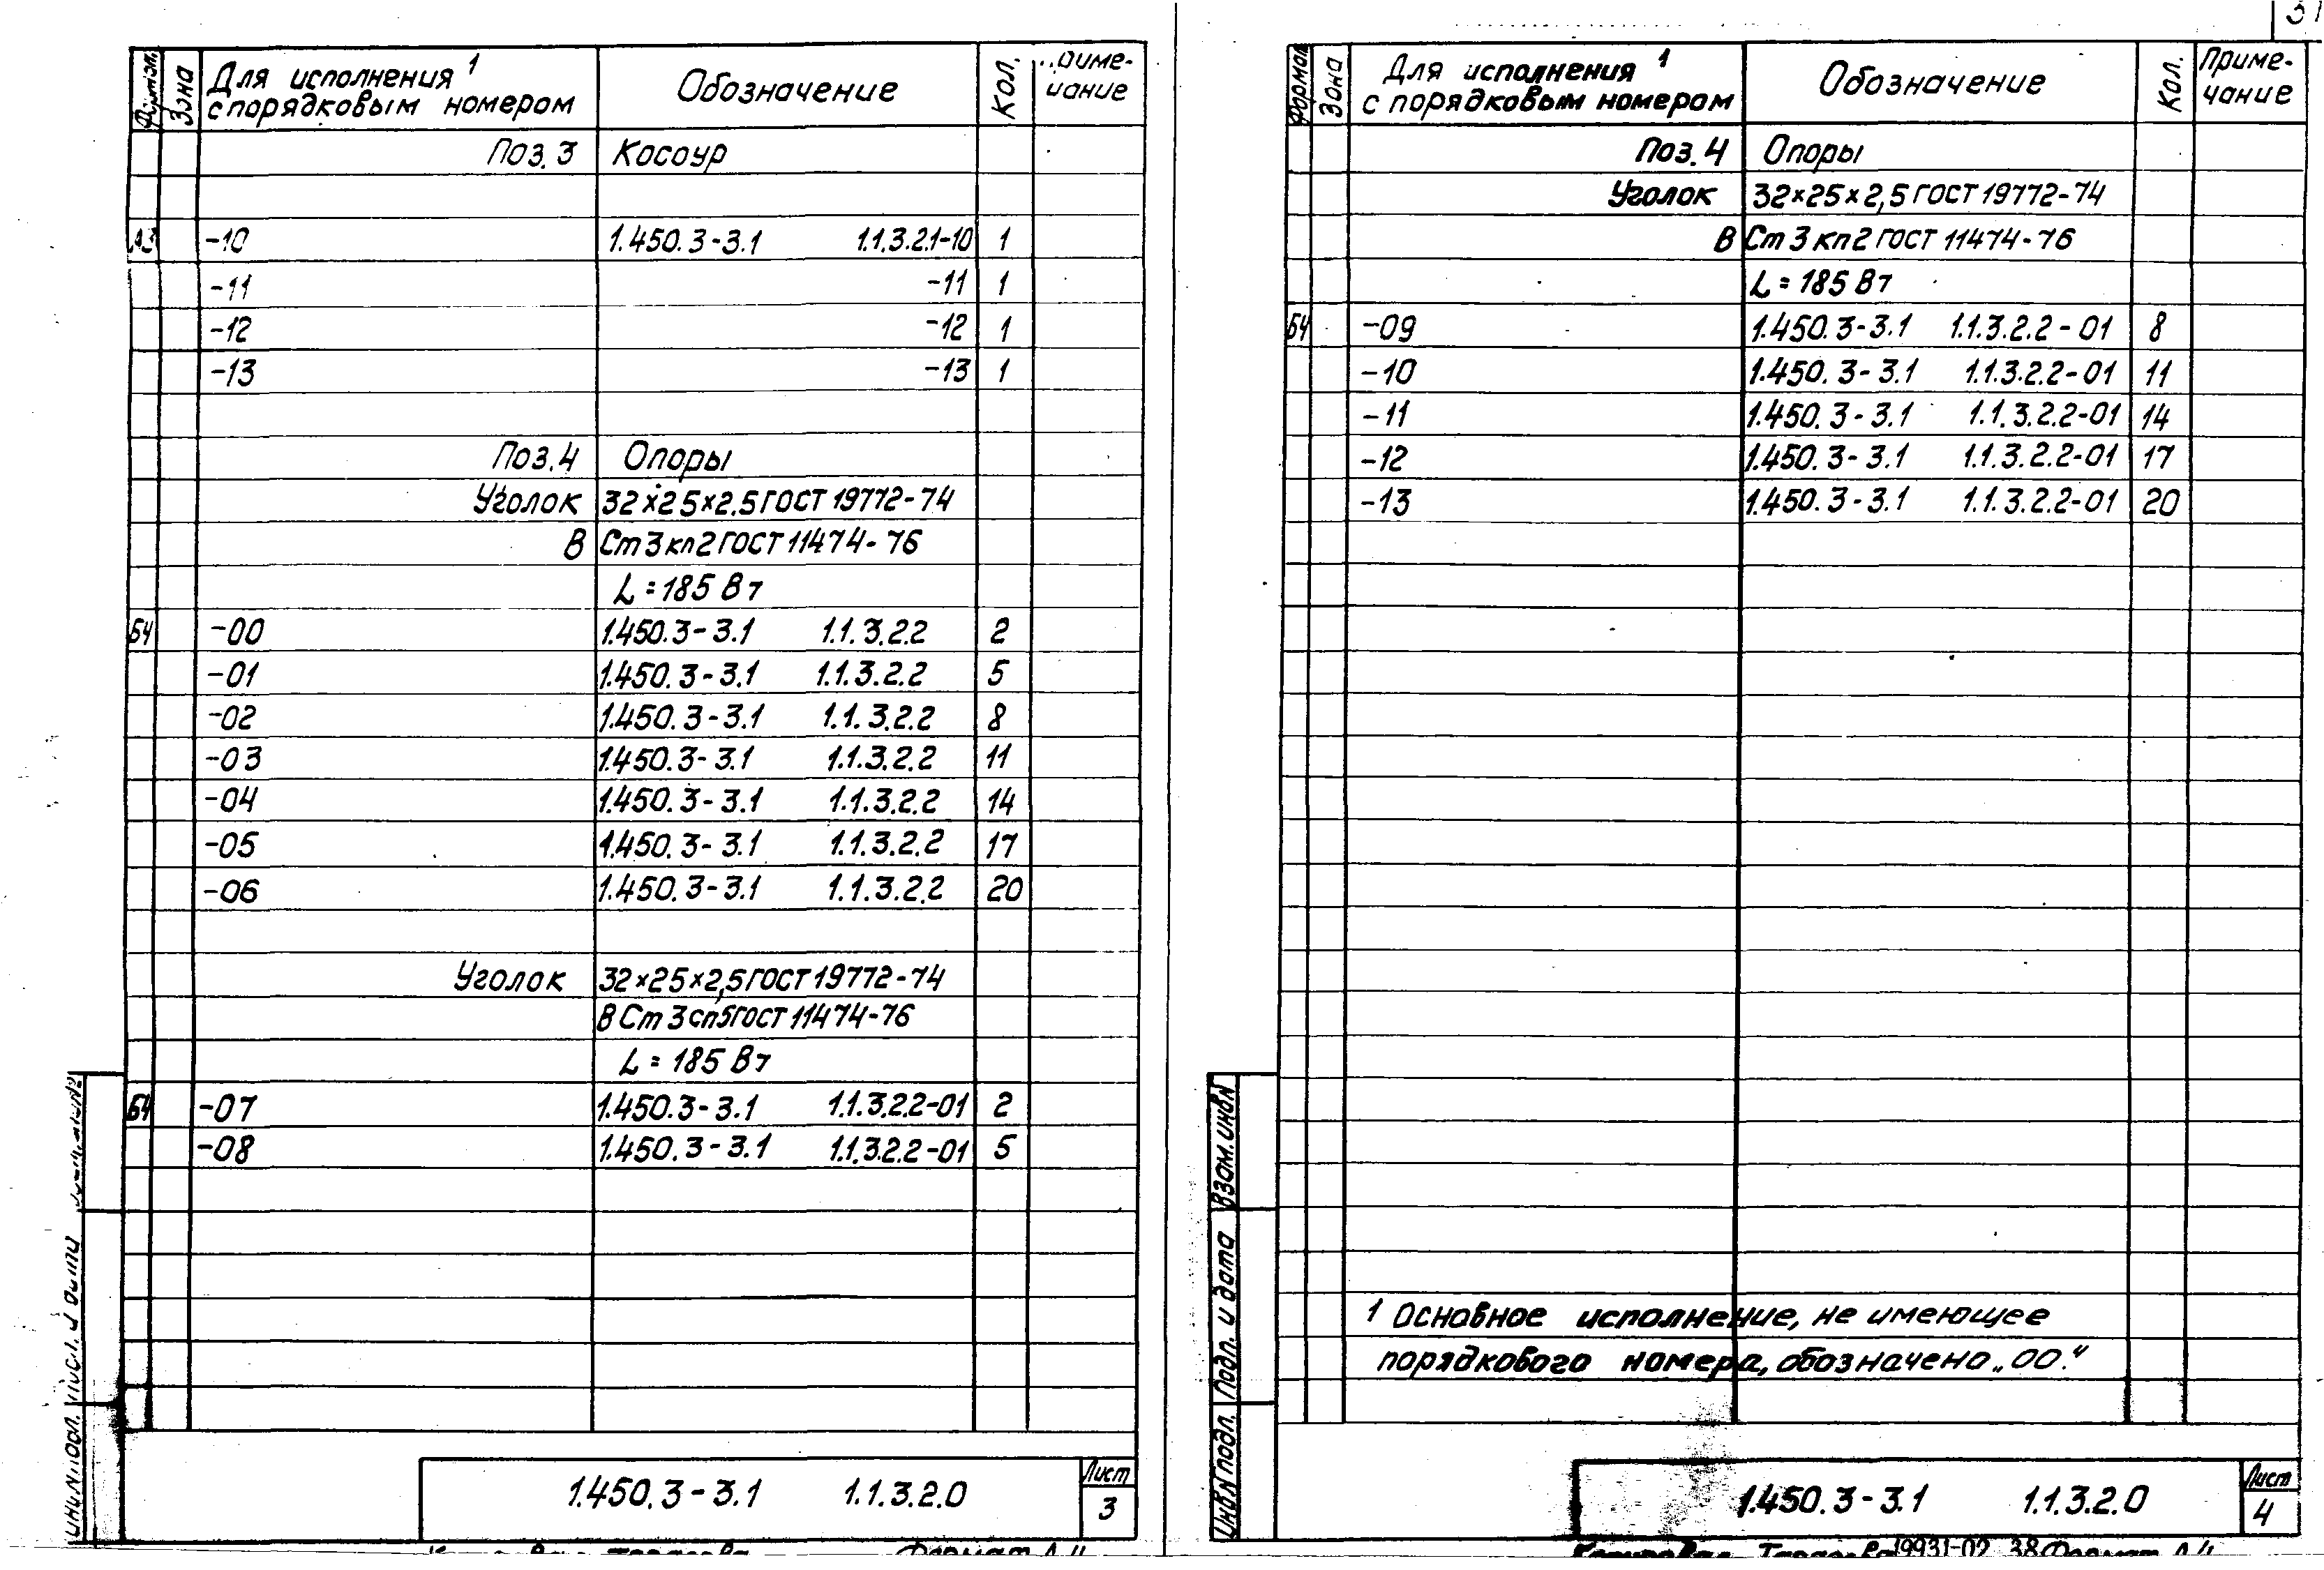 Зона
Для исполнения 1
с порядковым номером
Обозначение
Кол.
Поз. 3 Косоур
А3 -10 1.450.3-3.1 1.1.3.2.1-10 1
-11 -11 1
-12 -12 1
-13 -13 1
Поз. 4 Опоры
Уголок 32×25×2.5 ГОСТ 19772-74
В Ст 3 кп 2 ГОСТ 11474-76
L = 185 Вт
БЧ -00 1.450.3-3.1 1.1.3.2.2 2
-01 1.450.3-3.1 1.1.3.2.2 5
-02 1.450.3-3.1 1.1.3.2.2 8
-03 1.450.3-3.1 1.1.3.2.2 11
-04 1.450.3-3.1 1.1.3.2.2 14
-05 1.450.3-3.1 1.1.3.2.2 17
-06 1.450.3-3.1 1.1.3.2.2 20
Уголок 32×25×2,5 ГОСТ 19772-74
В Ст 3 сп5 ГОСТ 11474-76
L = 185 Вт
БЧ -07 1.450.3-3.1 1.1.3.2.2-01 2
-08 1.450.3-3.1 1.1.3.2.2-01 5
1.450.3-3.1 1.1.3.2.0
Лист
3
Формат
Зона
Для исполнения 1
с порядковым номером
Обозначение
Кол.
Приме-
чание
Поз. 4 Опоры
Уголок 32×25×2,5 ГОСТ 19772-74
В Ст 3 кп 2 ГОСТ 11474-76
L = 185 Вт
БЧ -09 1.450.3-3.1 1.1.3.2.2-01 8
-10 1.450.3-3.1 1.1.3.2.2-01 11
-11 1.450.3-3.1 1.1.3.2.2-01 14
-12 1.450.3-3.1 1.1.3.2.2-01 17
-13 1.450.3-3.1 1.1.3.2.2-01 20
1 Основное исполнение, не имеющее
порядкового номера, обозначено „00."
Взам. инв N
Подп. и дата
Инв N подл.
1.450.3-3.1 1.1.3.2.0
Лист
4
19931-02 38 Формат